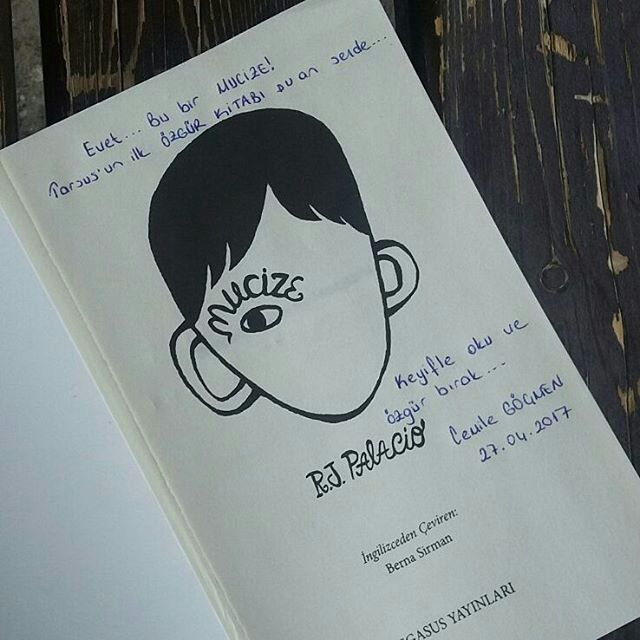 Evet... Bu bir MUCİZE!
Tarsus'un ilk ÖZGÜR KİTABI şu an sende...
MUCİZE
Keyifle oku ve
özgür bırak...
Cemile GÖÇMEN
27.04.2017
R.J. PALACIO
İngilizceden Çeviren:
Berna Sirman
EGASUS YAYINLARI